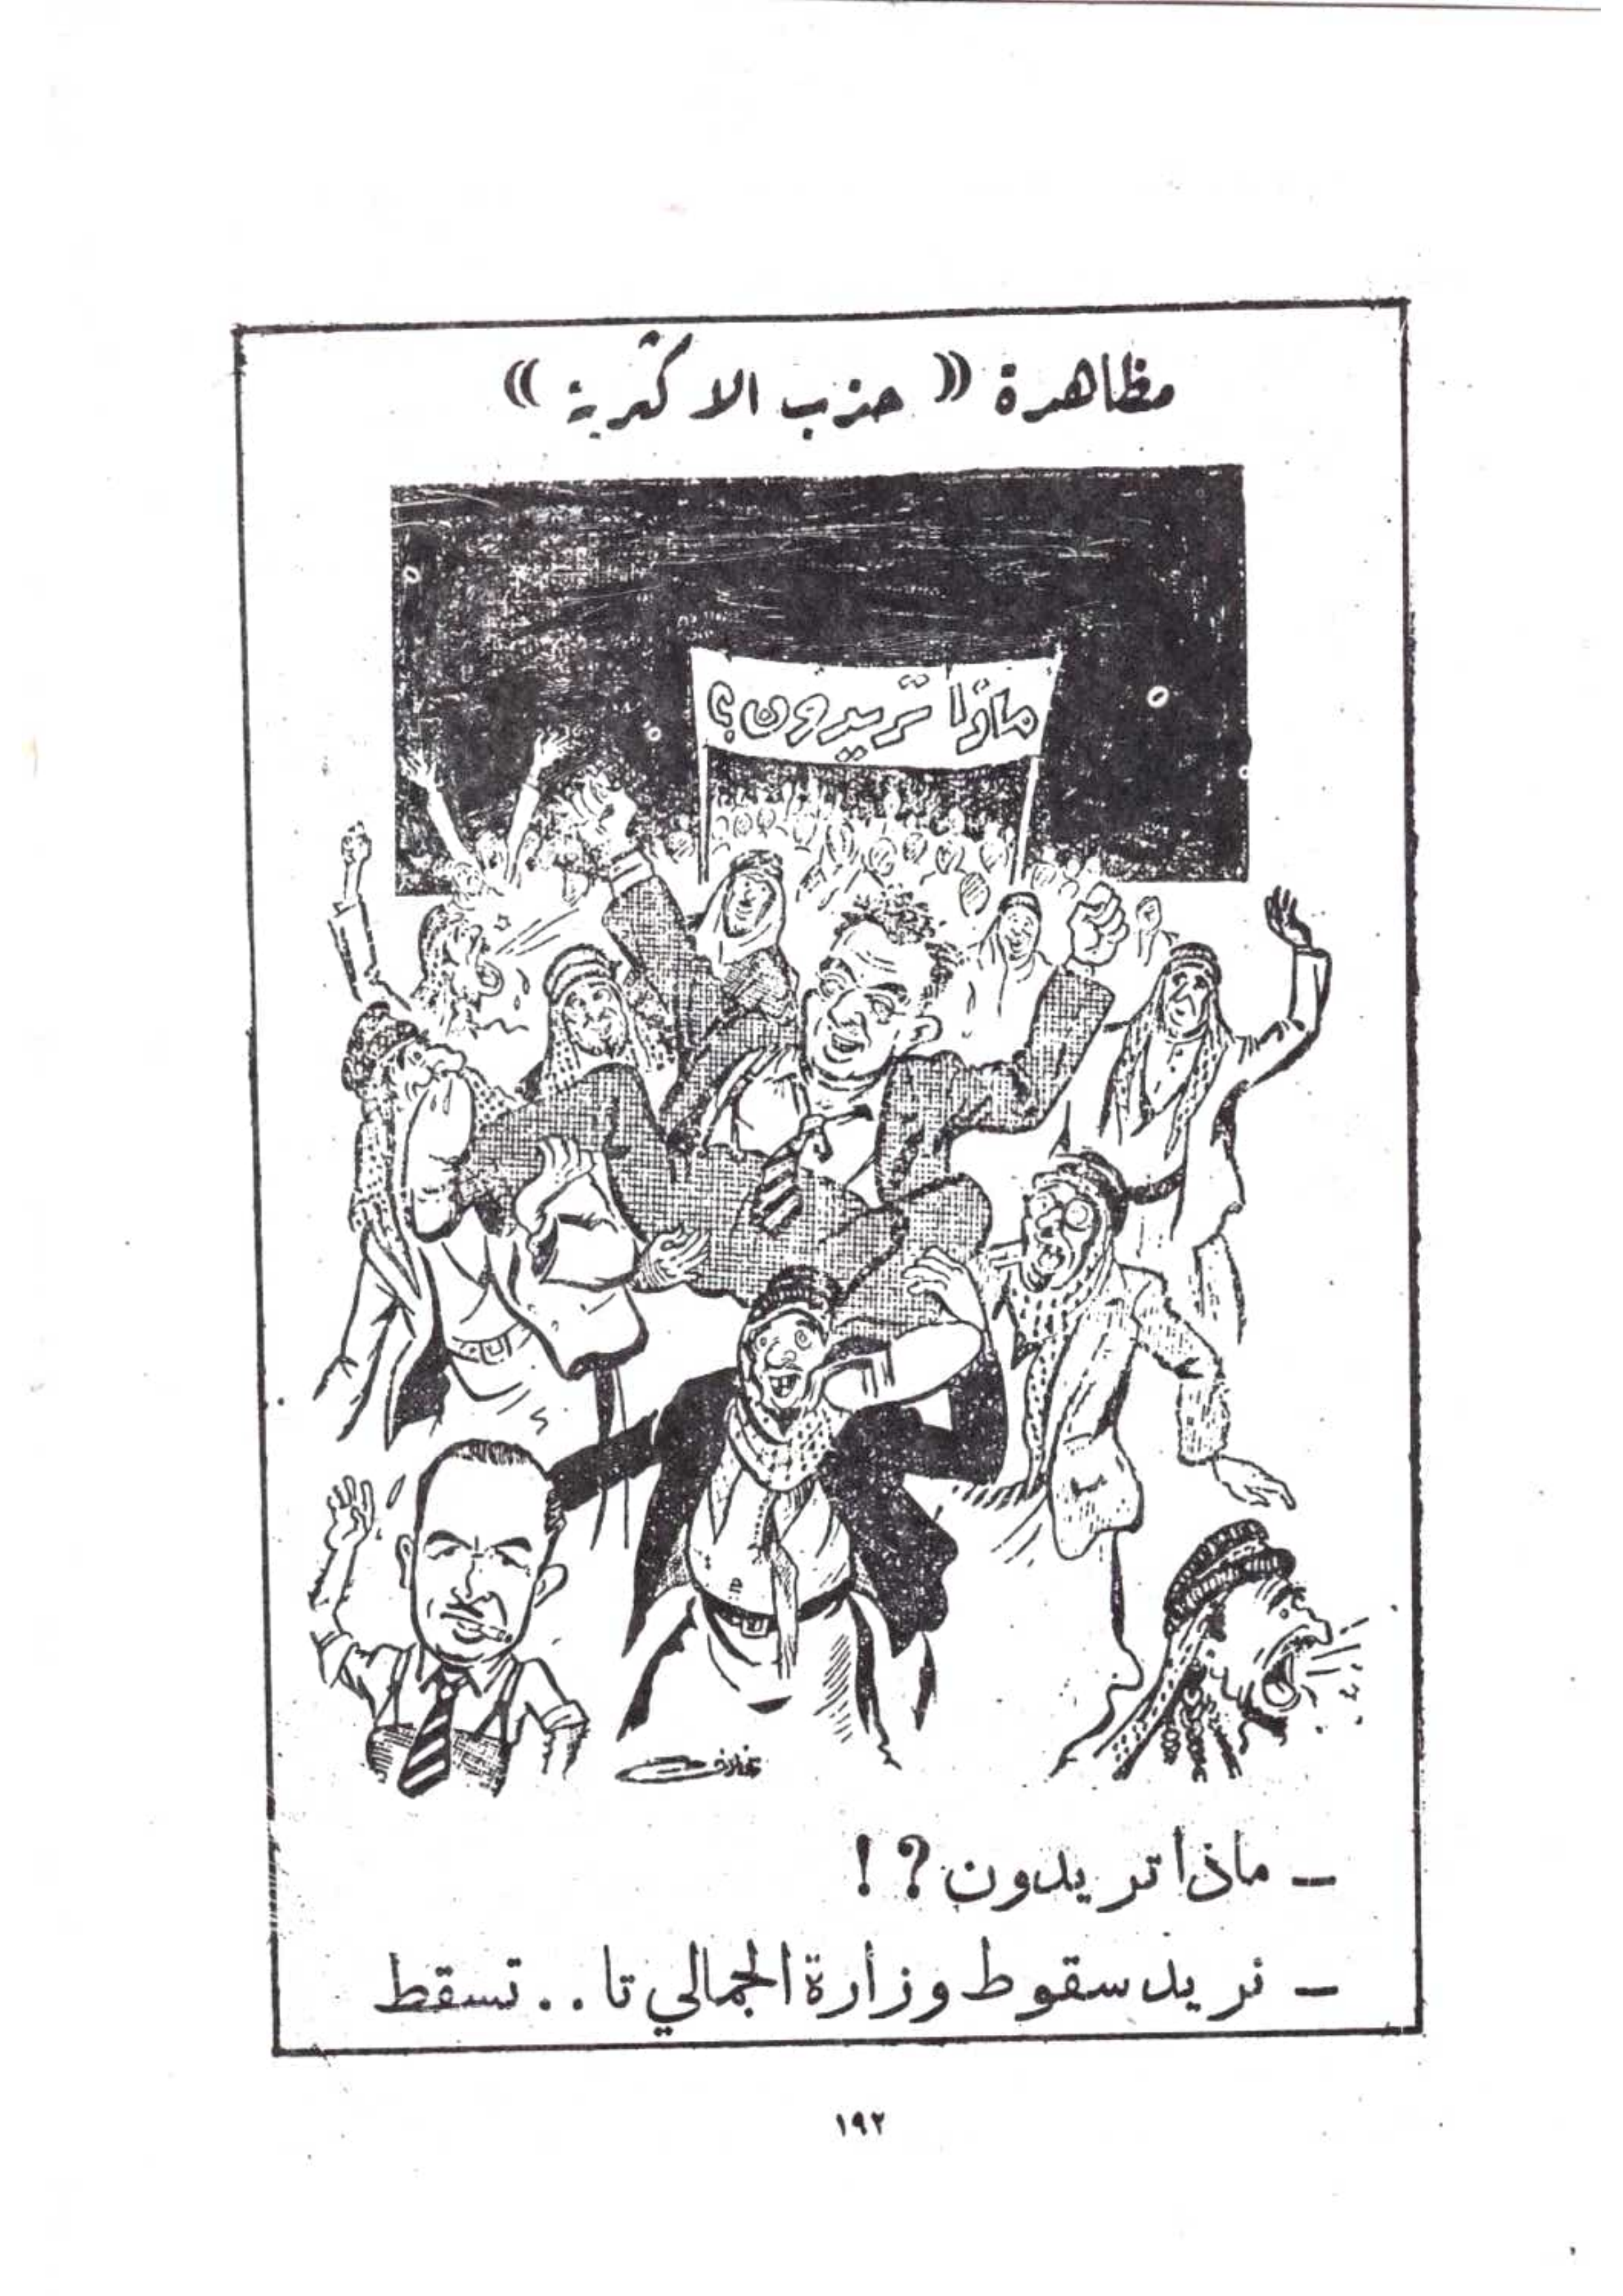 مظاهرة « حزب الاكثرية »
ماذا تريدون؟
غازي
– ماذا تريدون؟!
– نريد سقوط وزارة الجمالي تا.. تسقط
١٩٢